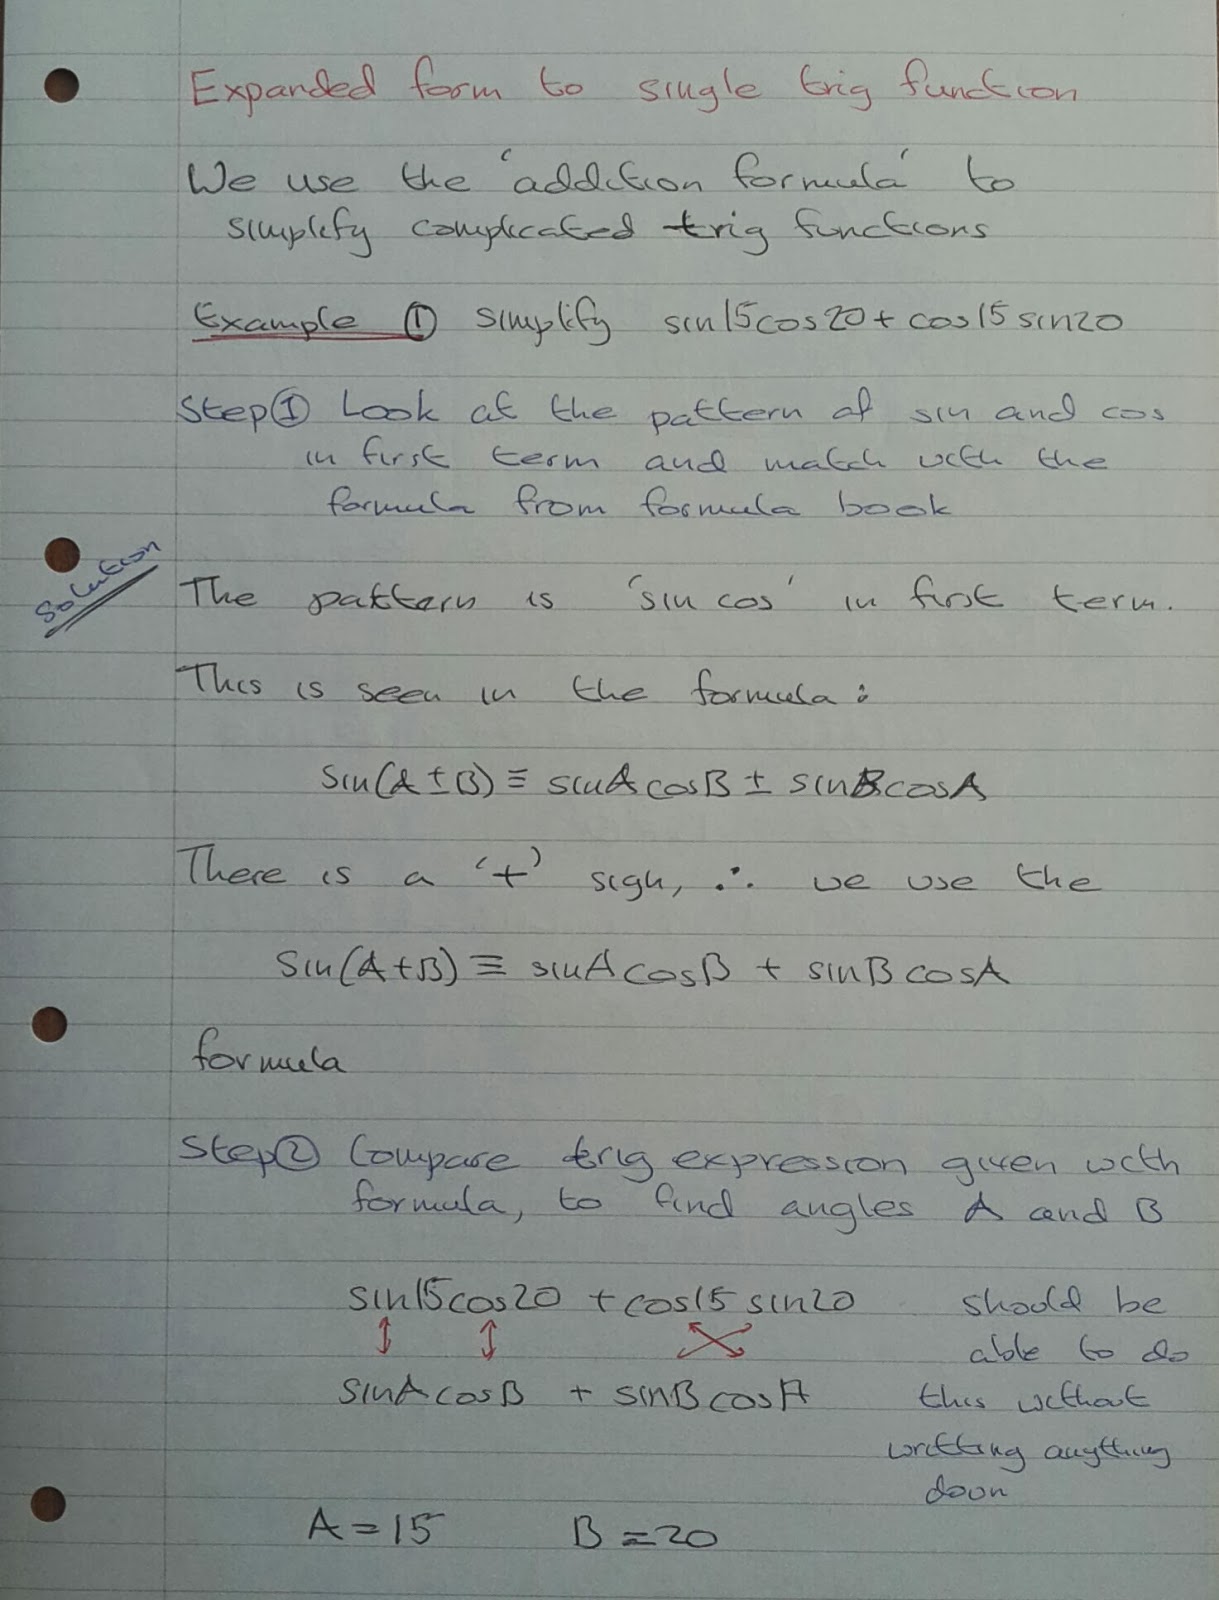 Expanded form to single trig function
We use the 'addition formula' to
simplify complicated trig functions
Example ① simplify sin15cos20 + cos15sin20
Step① Look at the pattern of sin and cos
in first term and match with the
formula from formula book
Solution
The pattern is 'sin cos' in first term.
This is seen in the formula:
sin(A±B) ≡ sinAcosB ± sinBcosA
There is a '+' sign, ∴ we use the
sin(A+B) ≡ sinAcosB + sinBcosA
formula
Step② Compare trig expression given with
formula, to find angles A and B
sin15cos20 + cos15sin20
sinAcosB + sinBcosA
should be
able to do
this without
writting anything
down
A=15 B=20